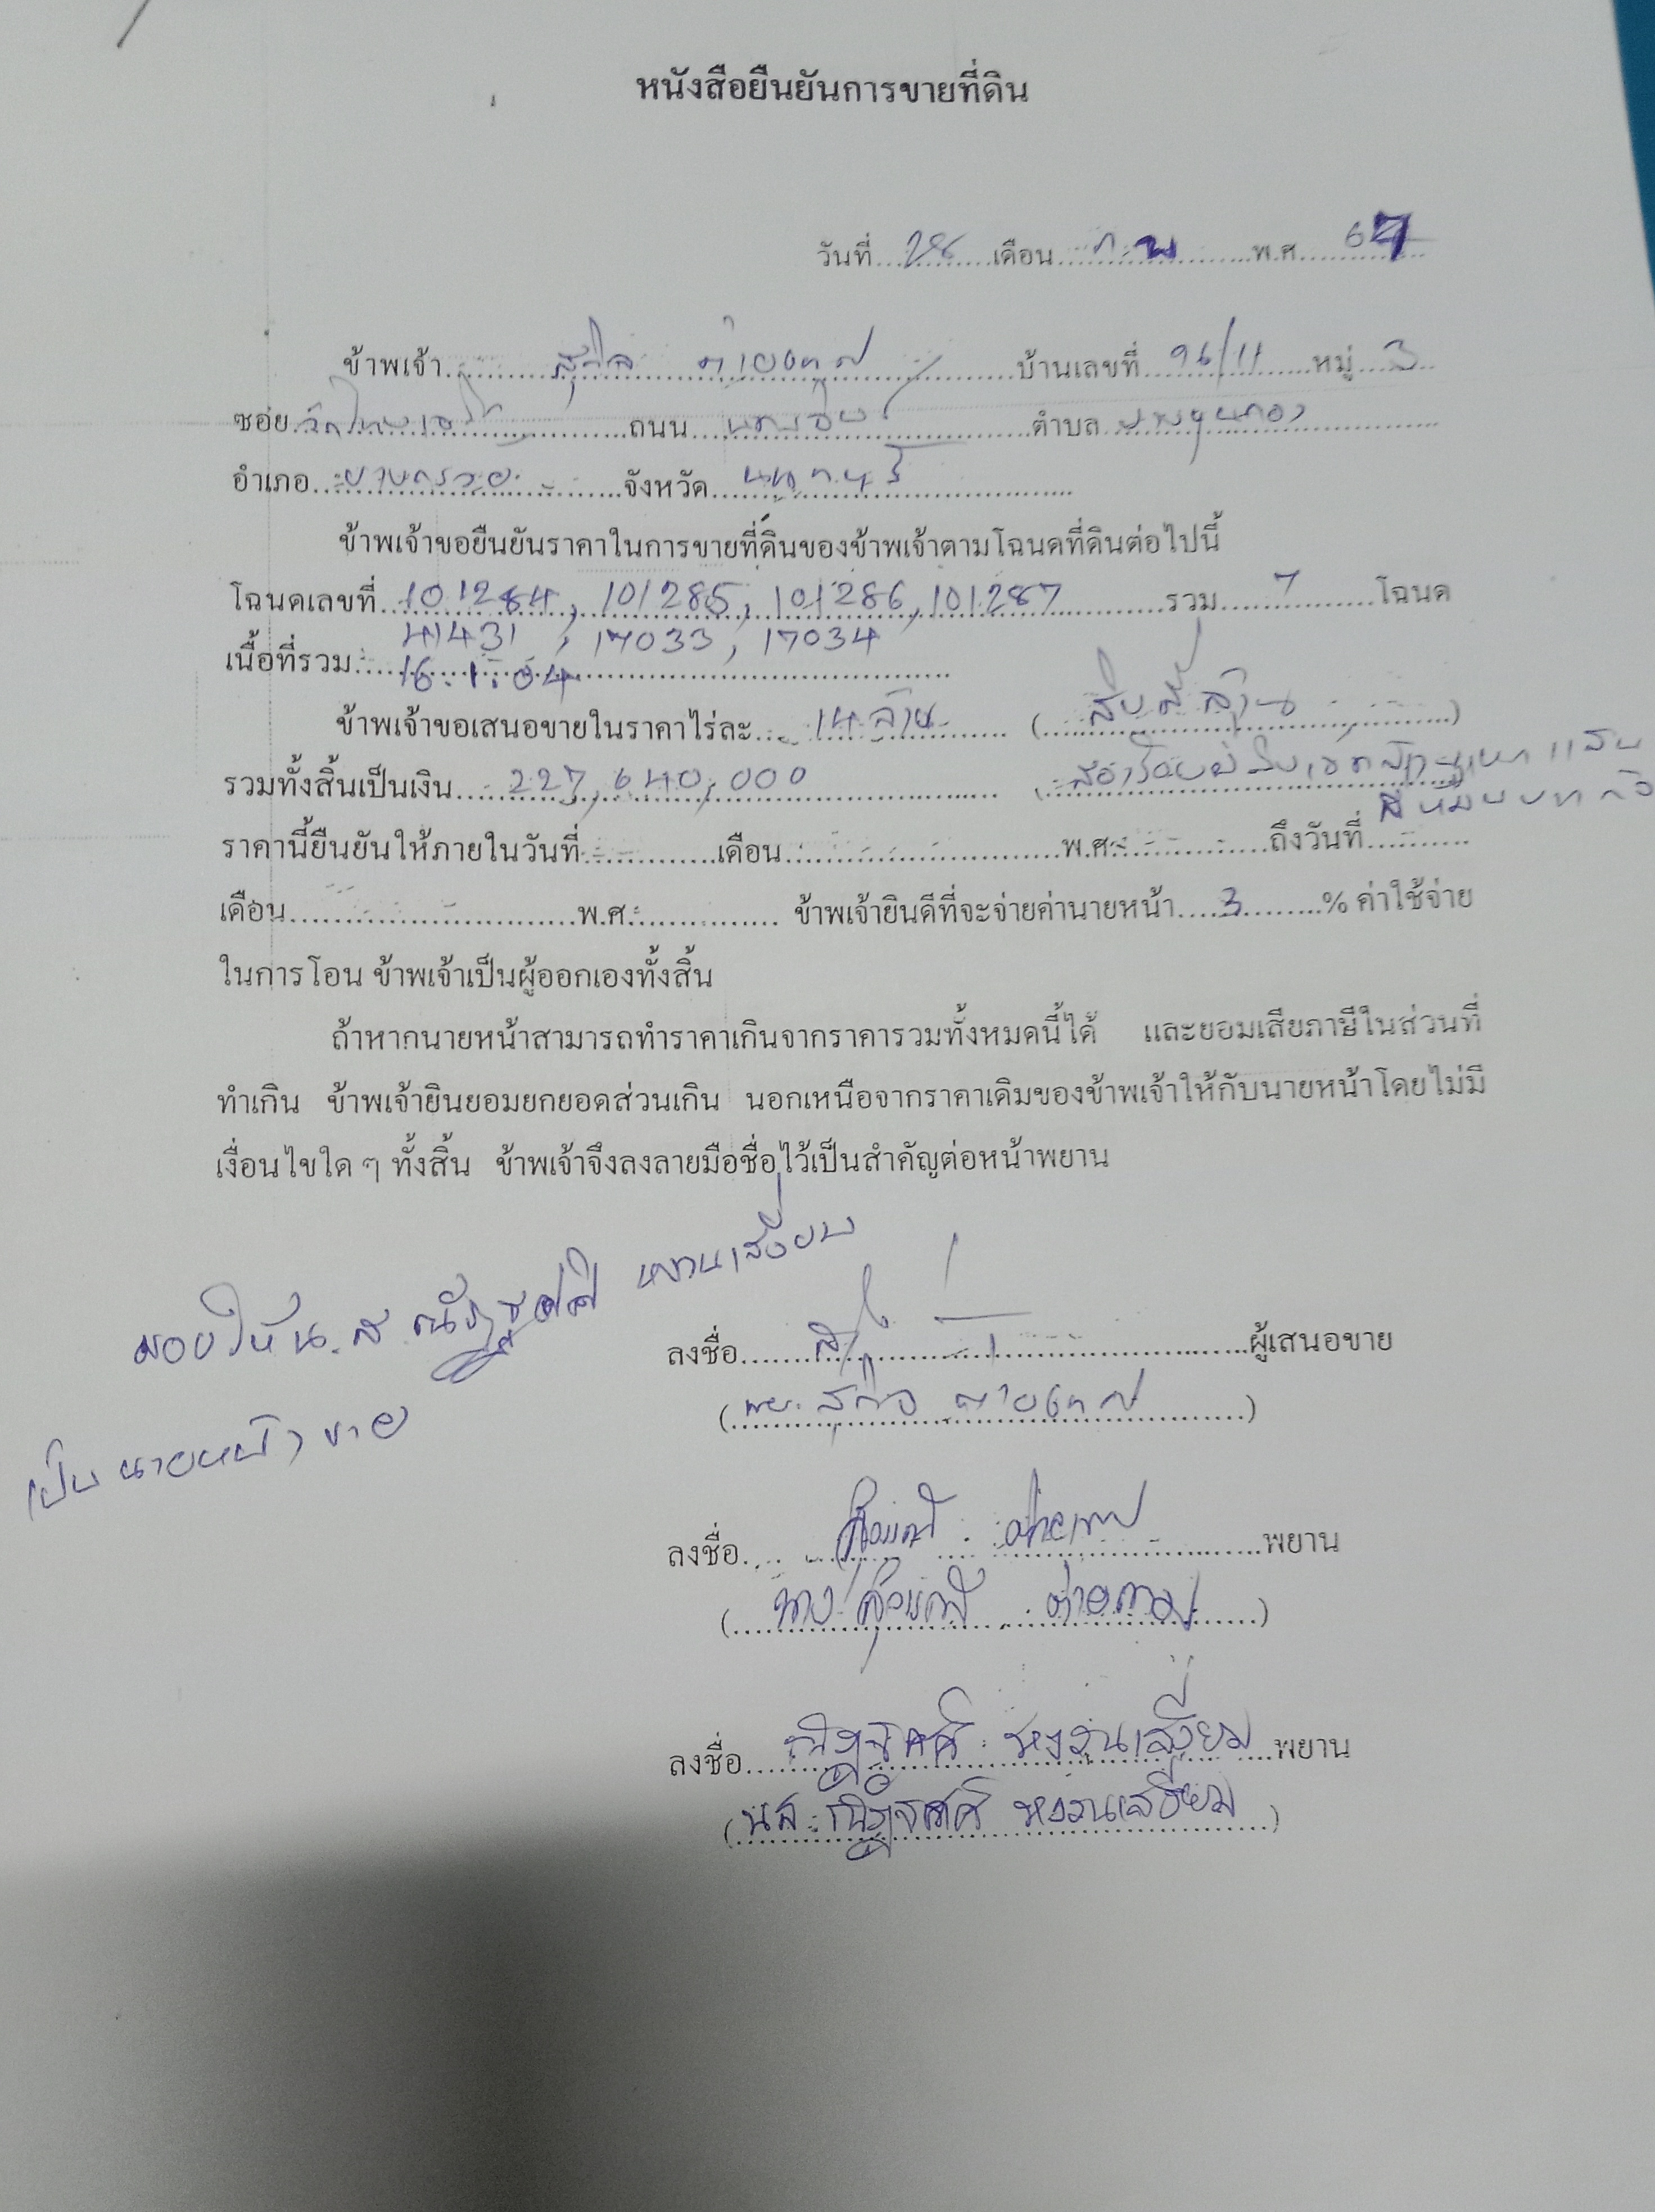 หนังสือยืนยันการขายที่ดิน
วันที่ 28 เดือน ก.พ พ.ศ. 67
ข้าพเจ้า บ้านเลขที่ 96/11 หมู่ 3
ซอย ถนน ตำบล บางขุนกอง
อำเภอ บางกรวย จังหวัด นนทบุรี
ข้าพเจ้าขอยืนยันราคาในการขายที่ดินของข้าพเจ้าตามโฉนดที่ดินต่อไปนี้
โฉนดเลขที่ 101284, 101285, 101286, 101287 รวม 7 โฉนด
41431, 17033, 17034
เนื้อที่รวม 16.1.04
ข้าพเจ้าขอเสนอขายในราคาไร่ละ 14 ล้าน (สิบสี่ล้าน)
รวมทั้งสิ้นเป็นเงิน 227,640,000 (สองร้อยยี่สิบเจ็ดล้านหกแสน
สี่หมื่นบาท
ราคานี้ยืนยันให้ภายในวันที่ เดือน พ.ศ. ถึงวันที่
เดือน พ.ศ. ข้าพเจ้ายินดีที่จะจ่ายค่านายหน้า 3 % ค่าใช้จ่าย
ในการโอน ข้าพเจ้าเป็นผู้ออกเองทั้งสิ้น
ถ้าหากนายหน้าสามารถทำราคาเกินจากราคารวมทั้งหมดนี้ได้ และยอมเสียภาษีในส่วนที่
ทำเกิน ข้าพเจ้ายินยอมยกยอดส่วนเกิน นอกเหนือจากราคาเดิมของข้าพเจ้าให้กับนายหน้าโดยไม่มี
เงื่อนไขใด ๆ ทั้งสิ้น ข้าพเจ้าจึงลงลายมือชื่อไว้เป็นสำคัญต่อหน้าพยาน
มอบให้ น.ส หงวนเสงี่ยม
เป็นนายหน้าขาย
ลงชื่อ ผู้เสนอขาย
ลงชื่อ พยาน
(นาง )
ลงชื่อ หงวนเสงี่ยม พยาน
(นส. หงวนเสงี่ยม)